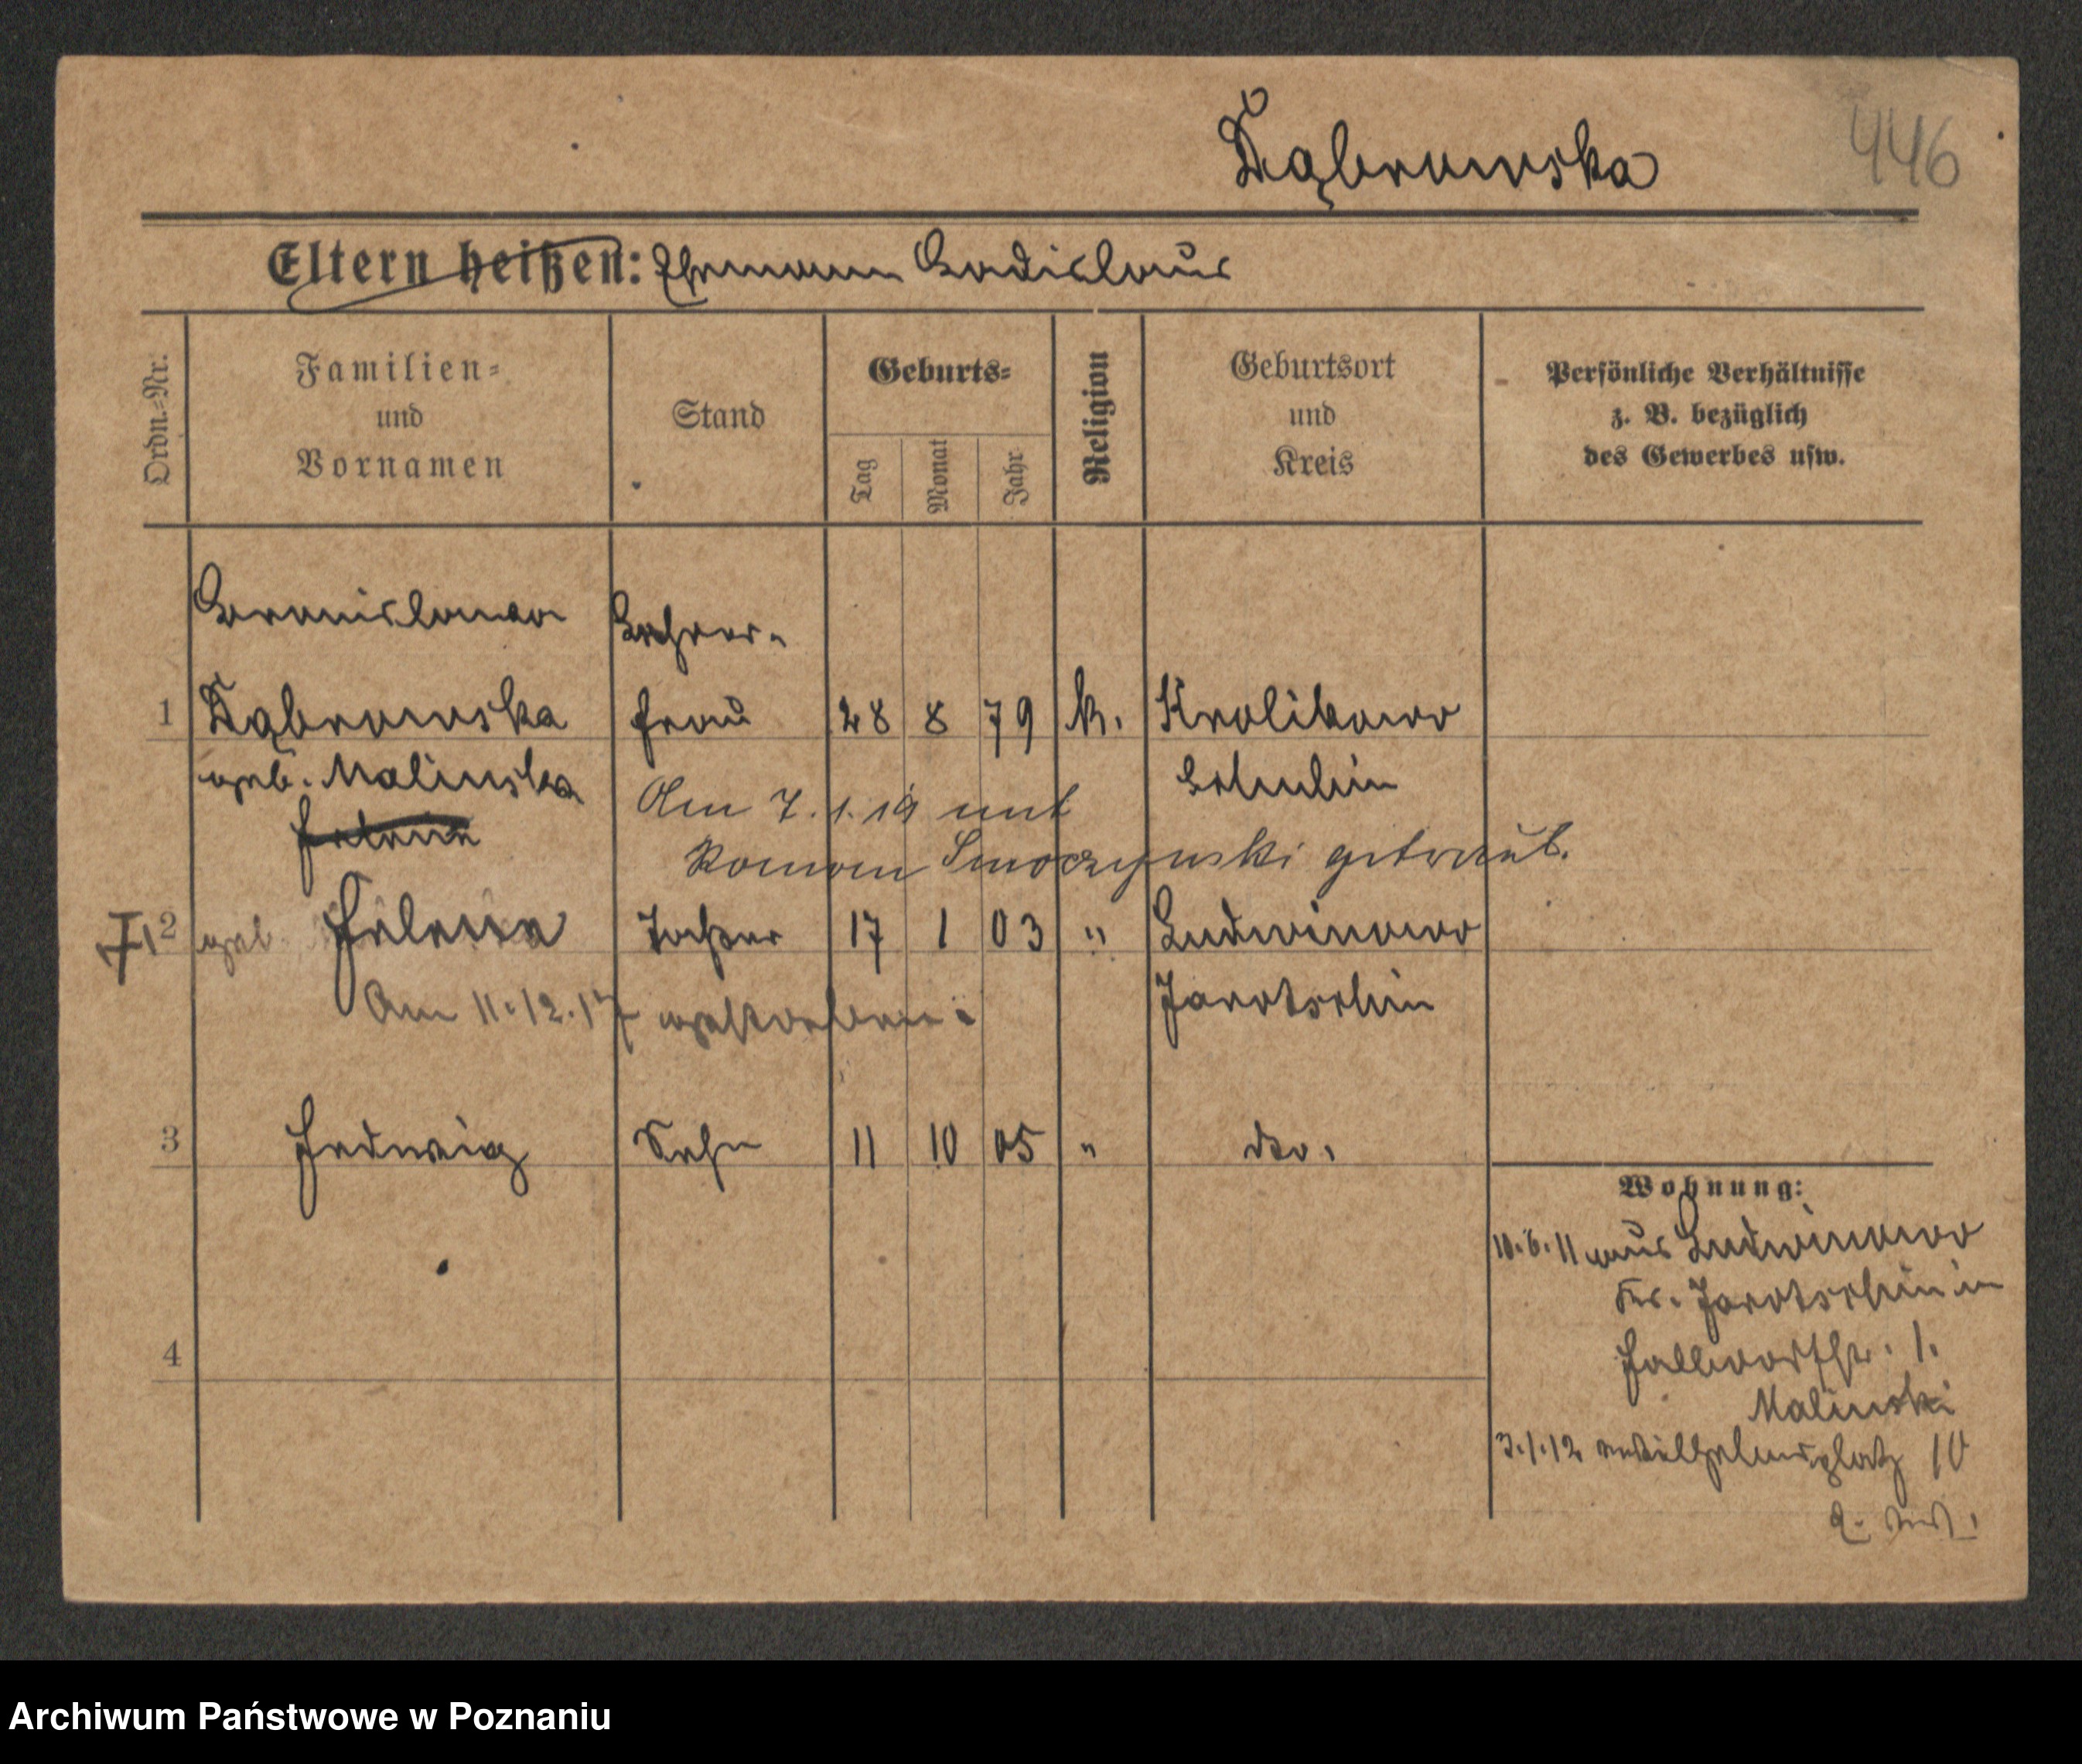 Dąbrowska
446
Eltern heißen: Ehemann Ladislaus
Ordn.-Nr.
Familien- und Vornamen
Stand
Geburts-
Tag
Monat
Jahr
Religion
Geburtsort und Kreis
Persönliche Verhältnisse
z. B. bezüglich
des Gewerbes usw.
Bronislawa Lehrer-
1 Dąbrowska frau 28 8 79 k. Krolikowo
geb. Malinska Schubin
Am 7.1.19 mit
Helene
Roman Smoczynski getraut.
2 geb. Helene Tochter 17 1 03 " Ludwinowo
Am 11.12.17 gestorben. Jarotschin
3 Hedwig Sohn 11 10 05 " dto.
4
Wohnung:
10.6.11 aus Ludwinowo
Kr. Jarotschin in
Halbdorfstr. 1.
Malinski
3.1.12 Wilhelmsplatz 10
Archiwum Państwowe w Poznaniu